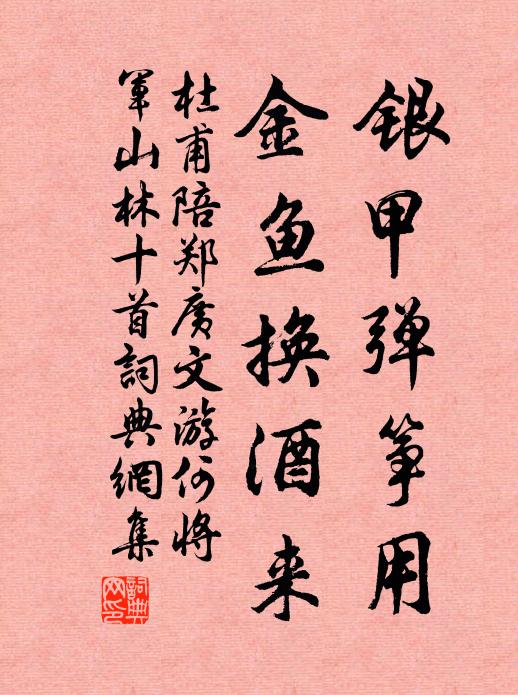 银甲弹筝用
金鱼换酒来
杜甫陪郑广文游何将
军山林十首詞典網集
詞典网印